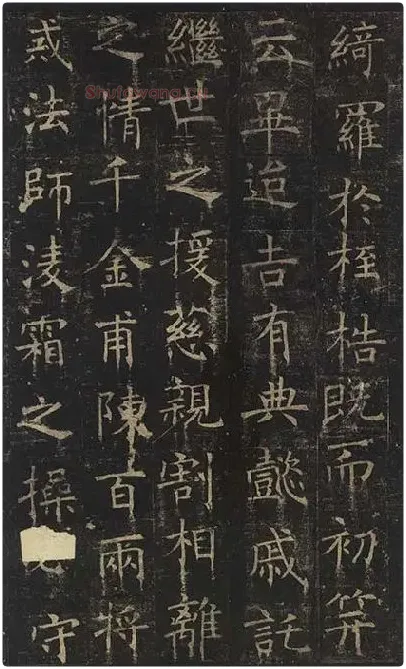 綺羅於桎梏既而初笄
云畢迨吉有典懿戚託
繼世之援慈親割相離
之情千金甫陳百兩將
戒法師淩霜之操 守
Shufawang.cn